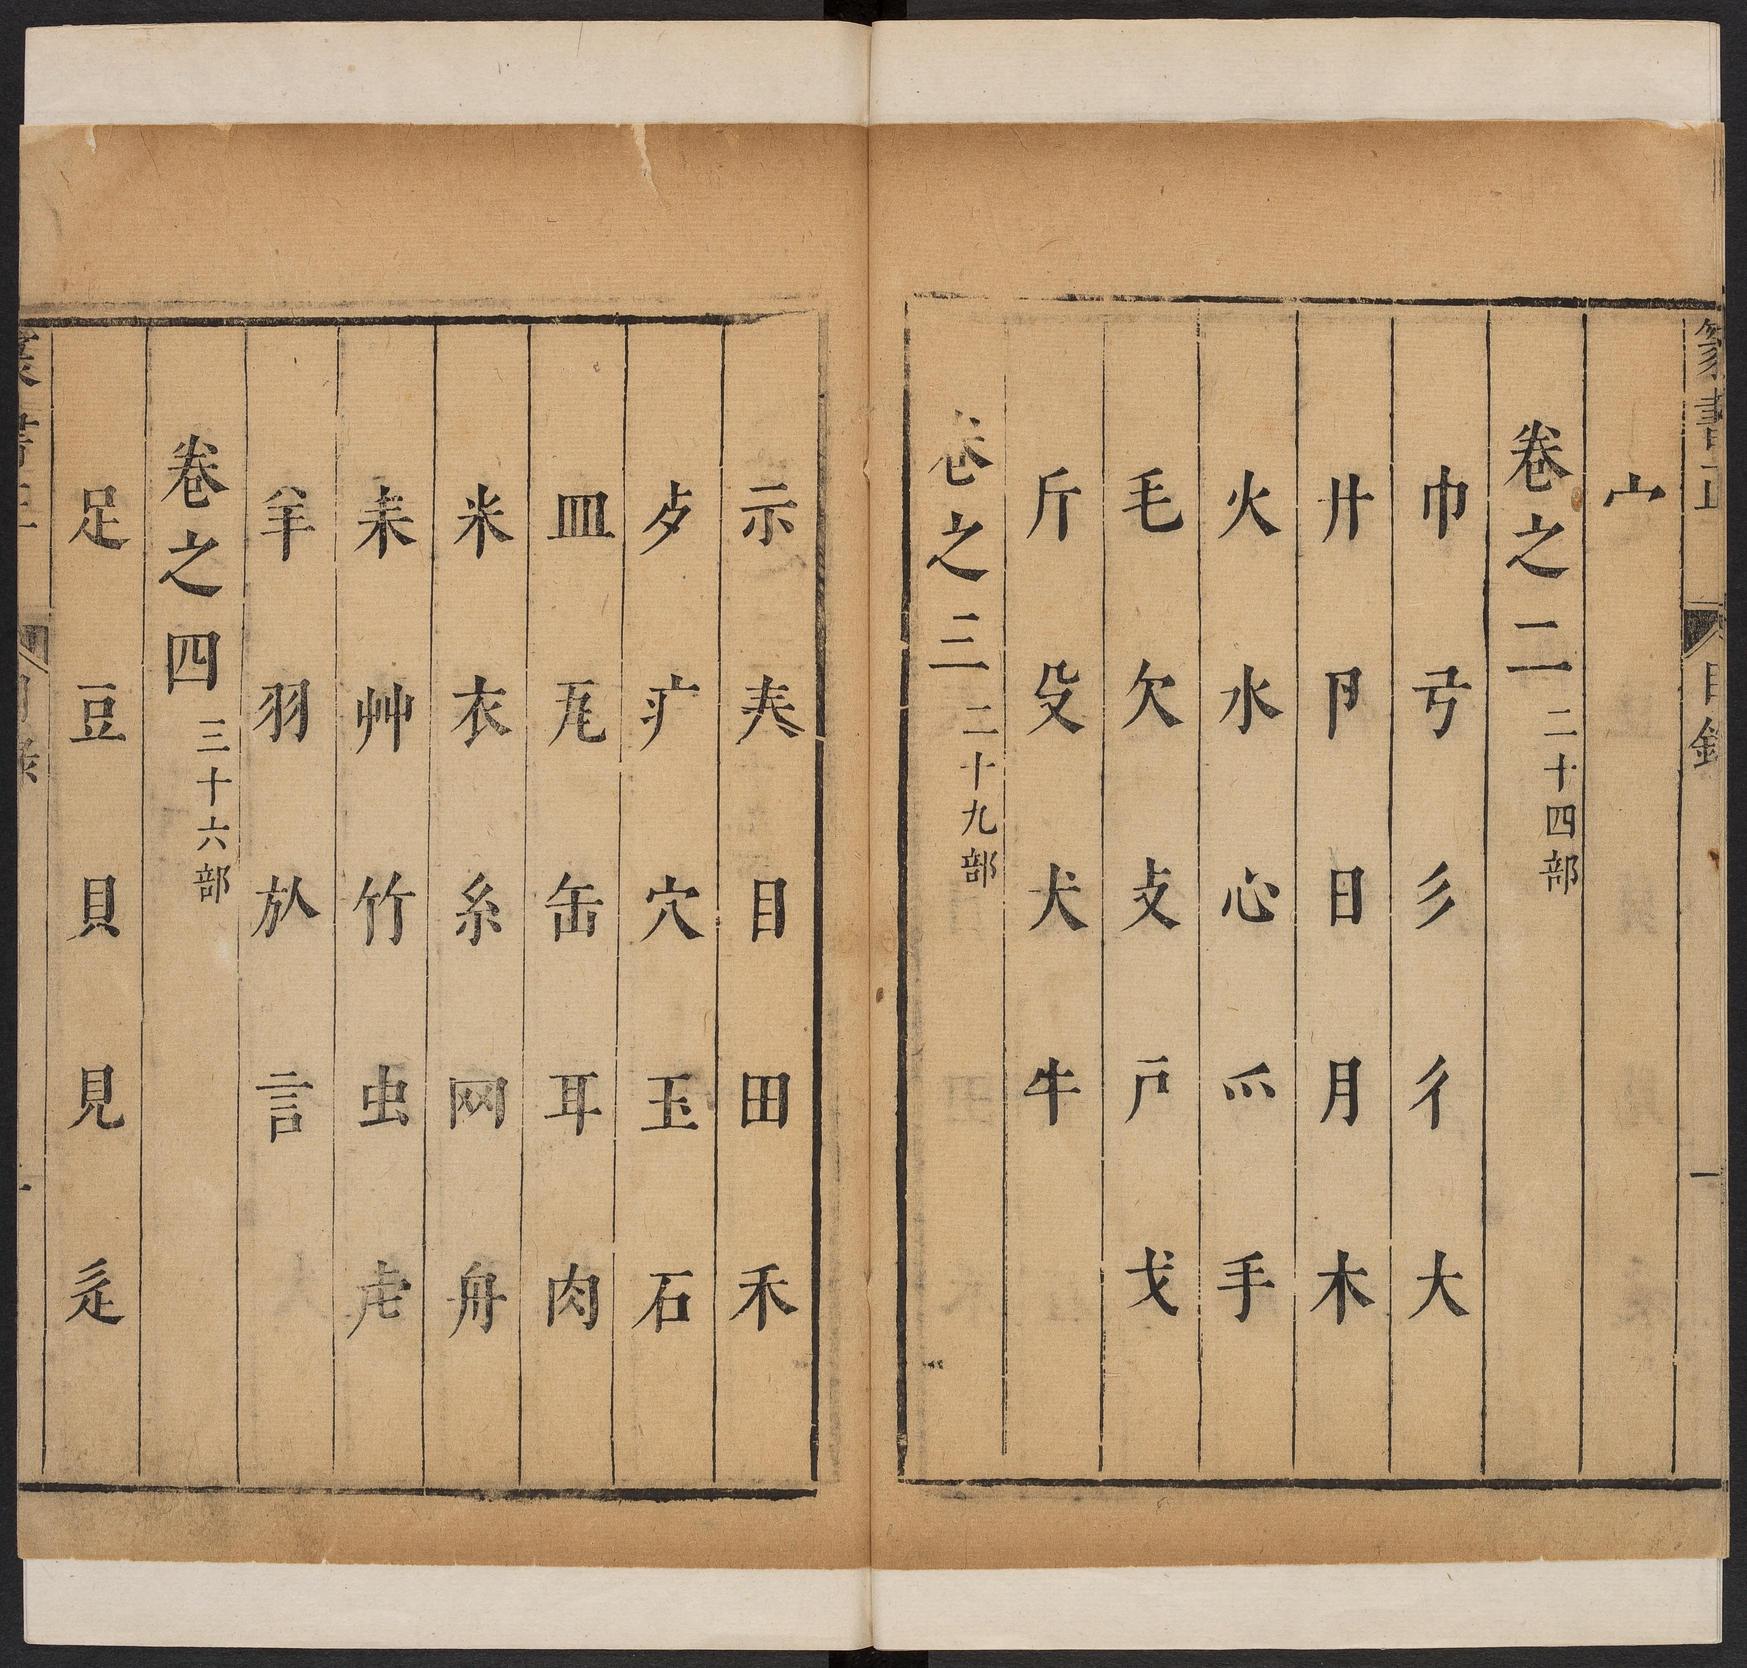 篆書正
目錄
一
宀
卷之二 二十四部
巾 弓 彡 彳 大
廾 卪 日 月 木
火 水 心 爪 手
毛 欠 攴 戶 戈
斤 殳 犬 牛
卷之三 二十九部
示 目 田 禾
歺 疒 穴 玉 石
皿 缶 耳 肉
米 衣 糸 网 舟
耒 艸 竹 虫 虍
羊 羽 㫃 言
卷之四 三十六部
足 豆 貝 見 辵